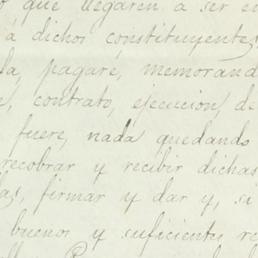 que llegaren a ser en
á dichos constituyentes
la, pagaré, memorand
contrato, ejecucion de
fuere, nada quedando
recobrar y recibir dichas
as, firmar y dar y, si
buenos y suficientes re